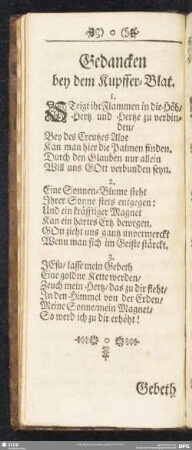 Gedancken
bey dem Kupffer-Blat.
1.
STeigt ihr Flammen in die Höh/
Hertz und Hertze zu verbin-
den/
Bey des Creutzes Aloe
Kan man hier die Palmen finden.
Durch den Glauben nur allein
Will uns GOtt verbunden seyn.
2.
Eine Sonnen-Blume steht
Ihrer Sonne stets entgegen:
Und ein kräfftiger Magnet
Kan ein hartes Ertz bewegen.
GOtt zieht uns gantz unvermerckt
Wenn man sich im Geiste stärckt.
3.
JEsu/ lasse mein Gebeth
Eine goldne Kette werden/
Zeuch mein Hertz/ das zu dir fleht/
In den Himmel von der Erden/
Meine Sonne/ mein Magnet/
So werd ich zu dir erhöht!
Gebeth